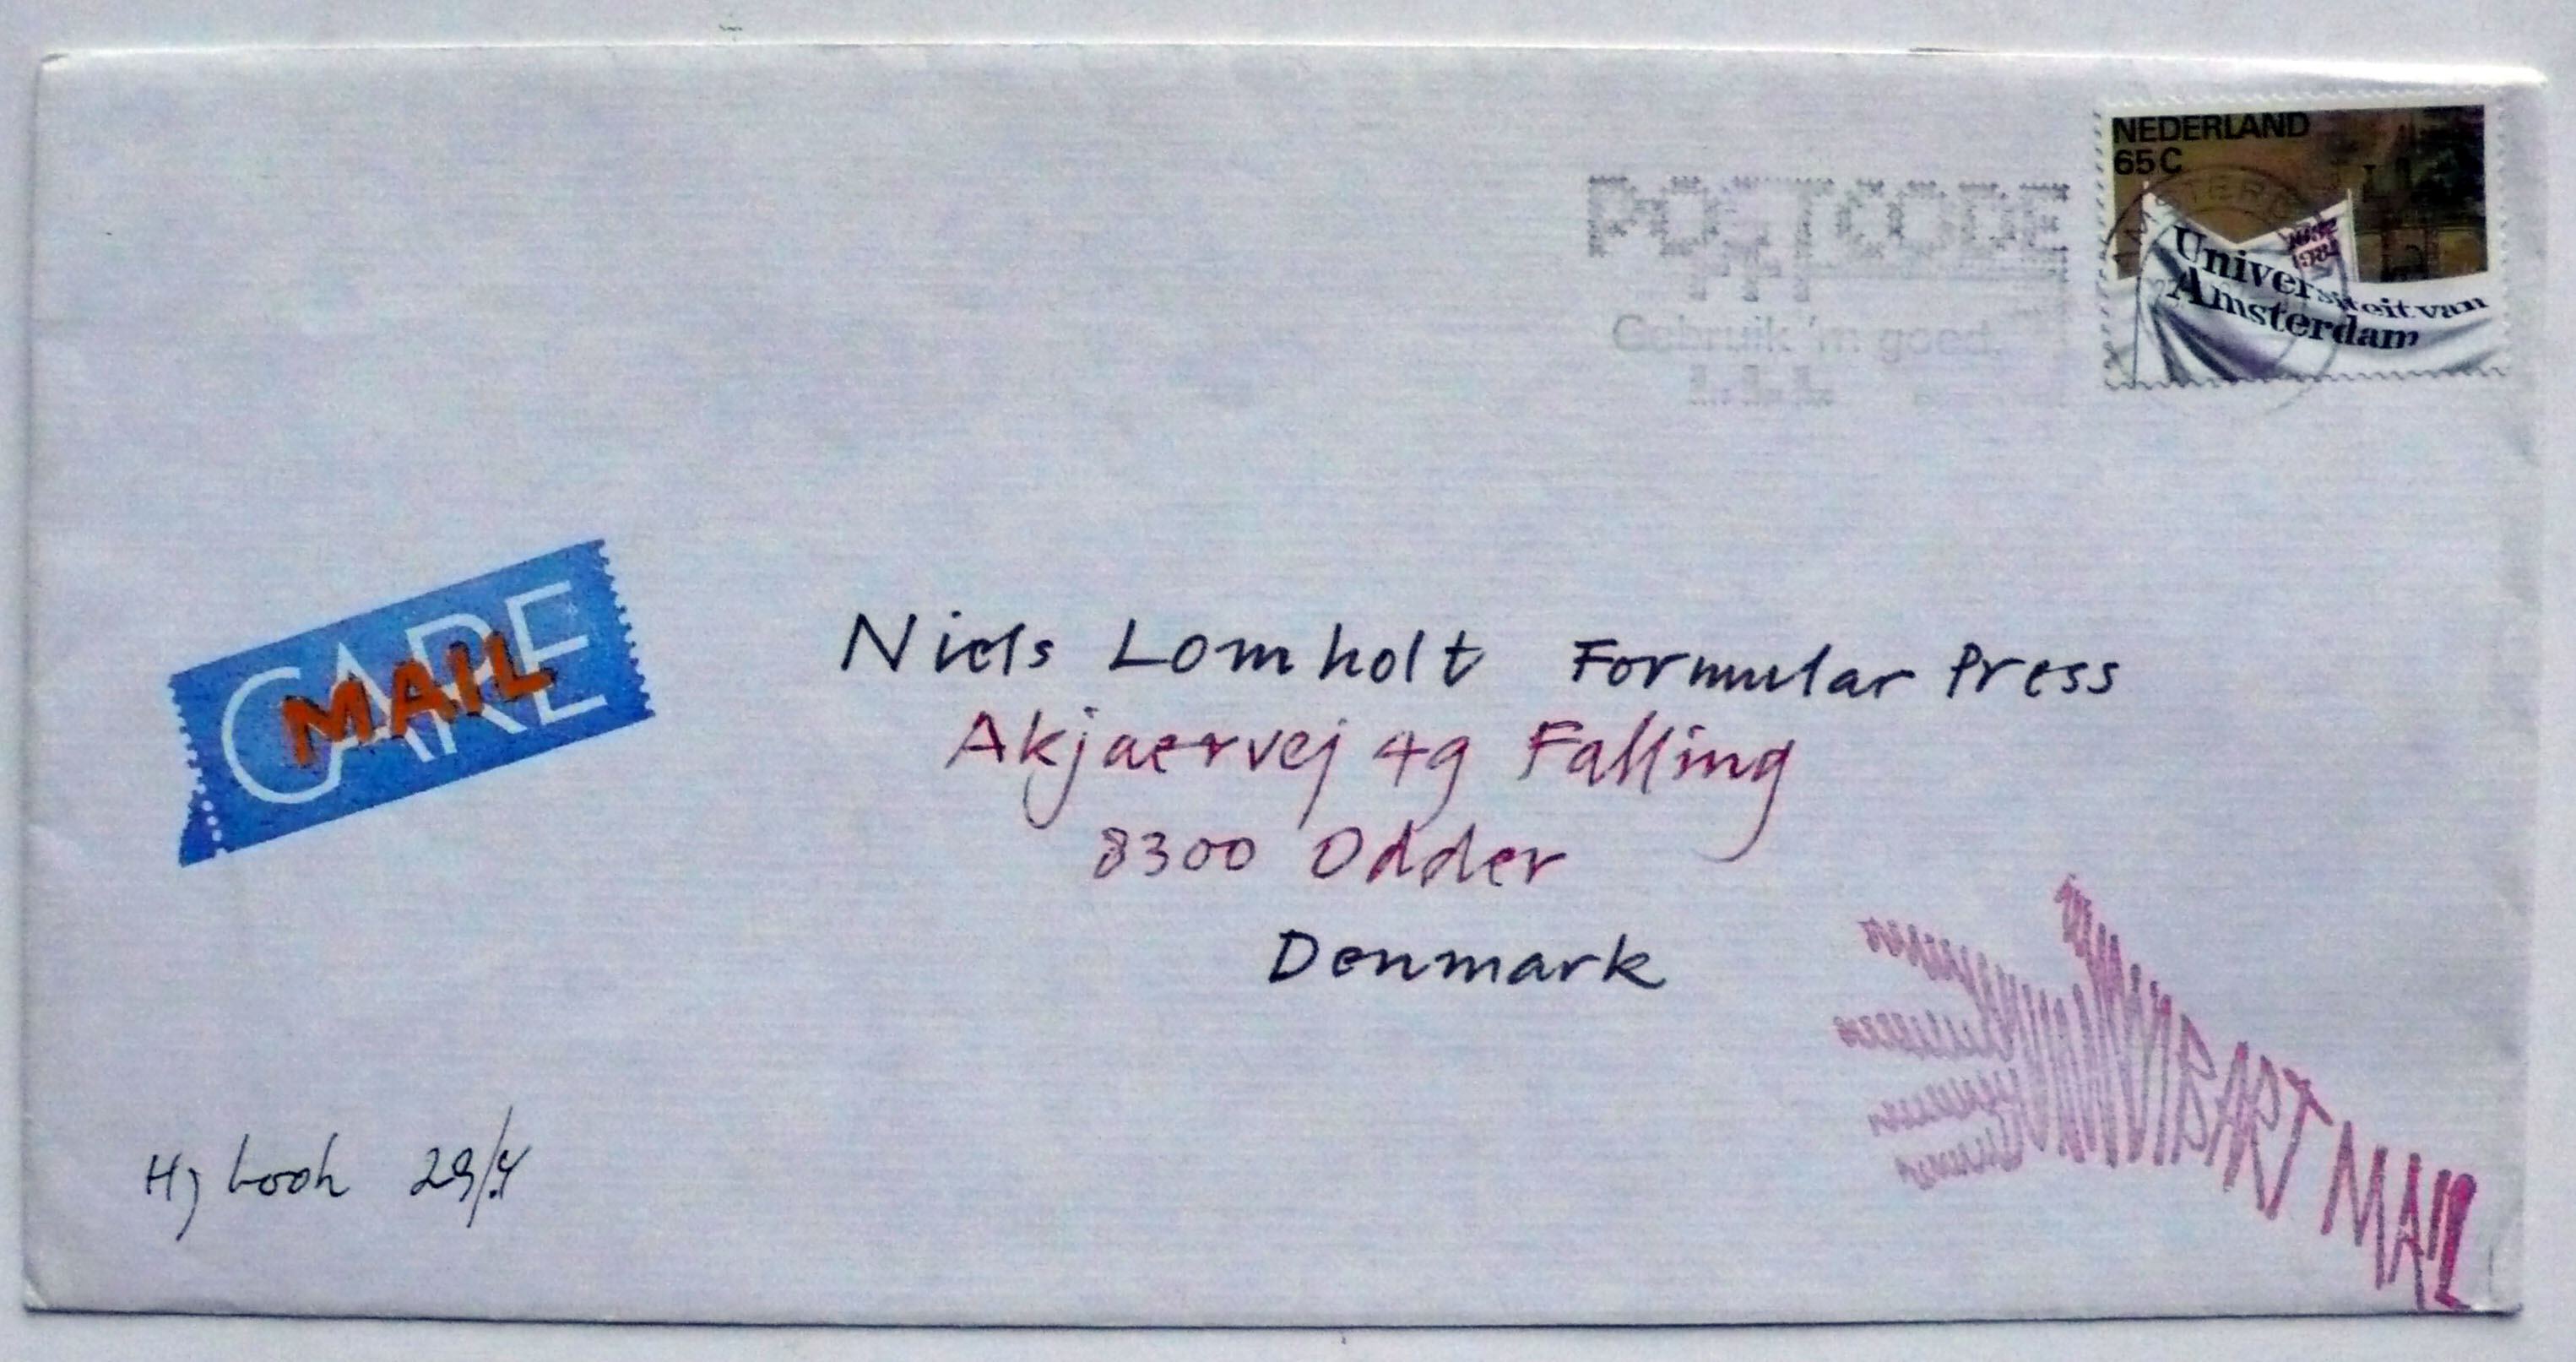 NEDERLAND
65 C
Universiteit van
Amsterdam
AMSTERDAM
1984
POSTCODE
Gebruik 'm goed.
CARE
MAIL
Niels Lomholt Formular Press
Akjaervej 49 Falling
8300 Odder
Denmark
ART MAIL
29/4